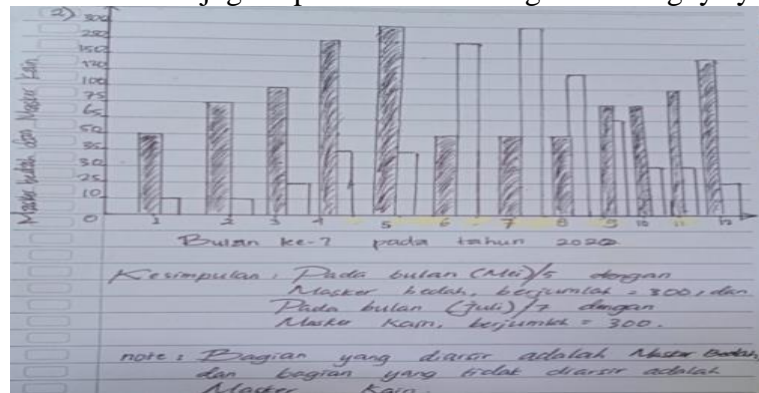 2)
300
250
150
120
100
75
65
50
35
30
25
10
0
Masker bedah dan Masker Kain
1 2 3 4 5 6 7 8 9 10 11 12
Bulan ke-? pada tahun 2020
Kesimpulan : Pada bulan (Mei)/5 dengan
Masker bedah, berjumlah = 300, dan
Pada bulan (Juli)/7 dengan
Masker Kain, berjumlah = 300.
note : Bagian yang diarsir adalah Masker Bedah,
dan bagian yang tidak diarsir adalah
Masker Kain.